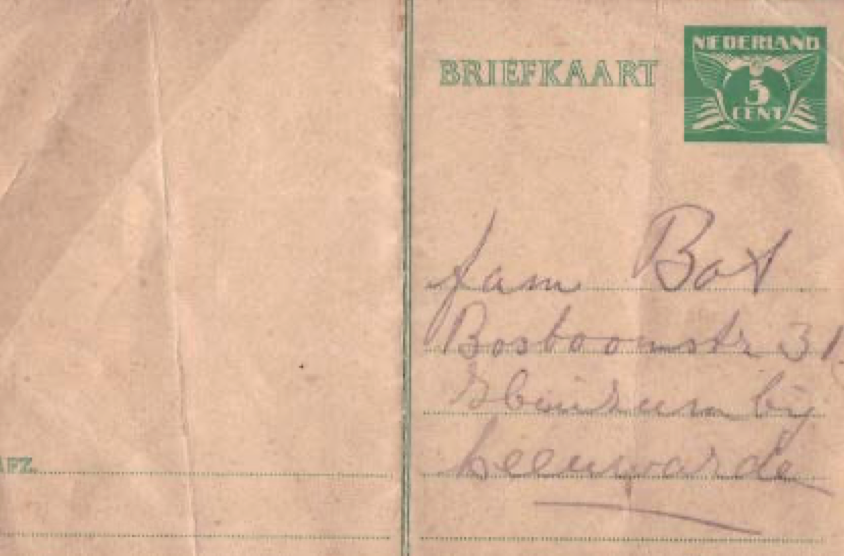 BRIEFKAART
NEDERLAND
5
CENT
fam Bot
Bosboomstr 31
bij
Leeuwarde
AFZ.